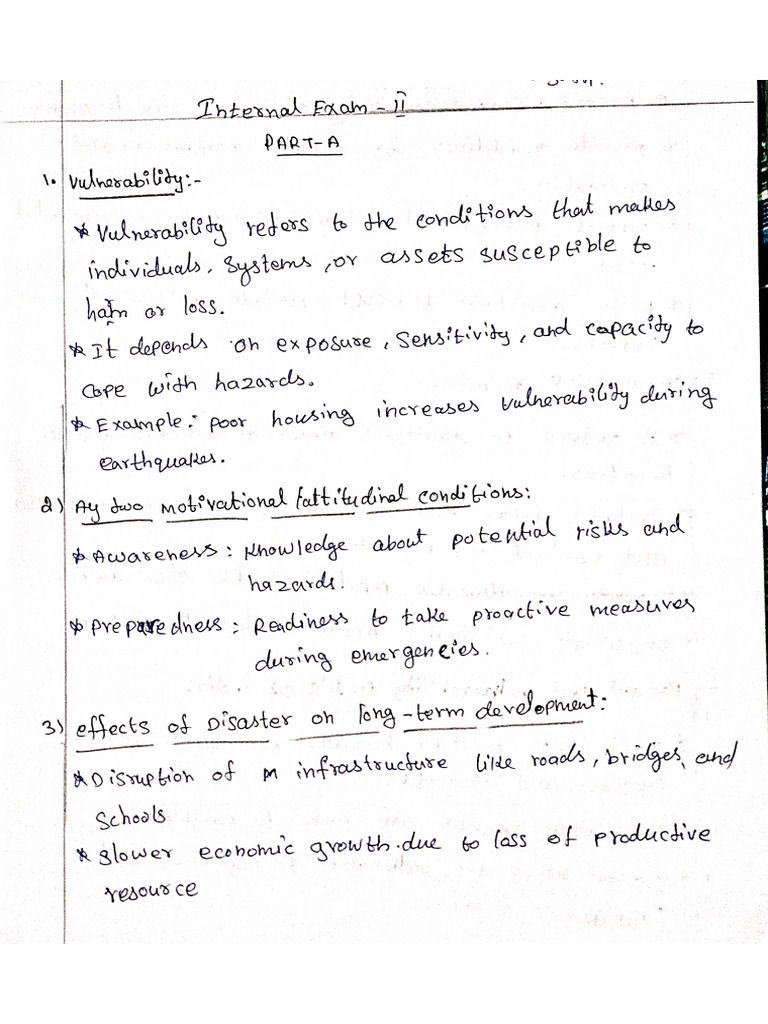 Internal Exam - II
PART-A
1. Vulnerability:-
* Vulnerability refers to the conditions that makes
individuals, systems, or assets susceptible to
harm or loss.
* It depends on exposure, sensitivity, and capacity to
cope with hazards.
* Example: poor housing increases vulnerability during
earthquakes.
2) Ay two motivational /attitudinal conditions:
* Awareness: Knowledge about potential risks and
hazards.
* Preparedness: Readiness to take proactive measures
during emergencies.
3) effects of Disaster on long-term development:
* Disruption of infrastructure like roads, bridges, and
schools
* slower economic growth due to loss of productive
resource